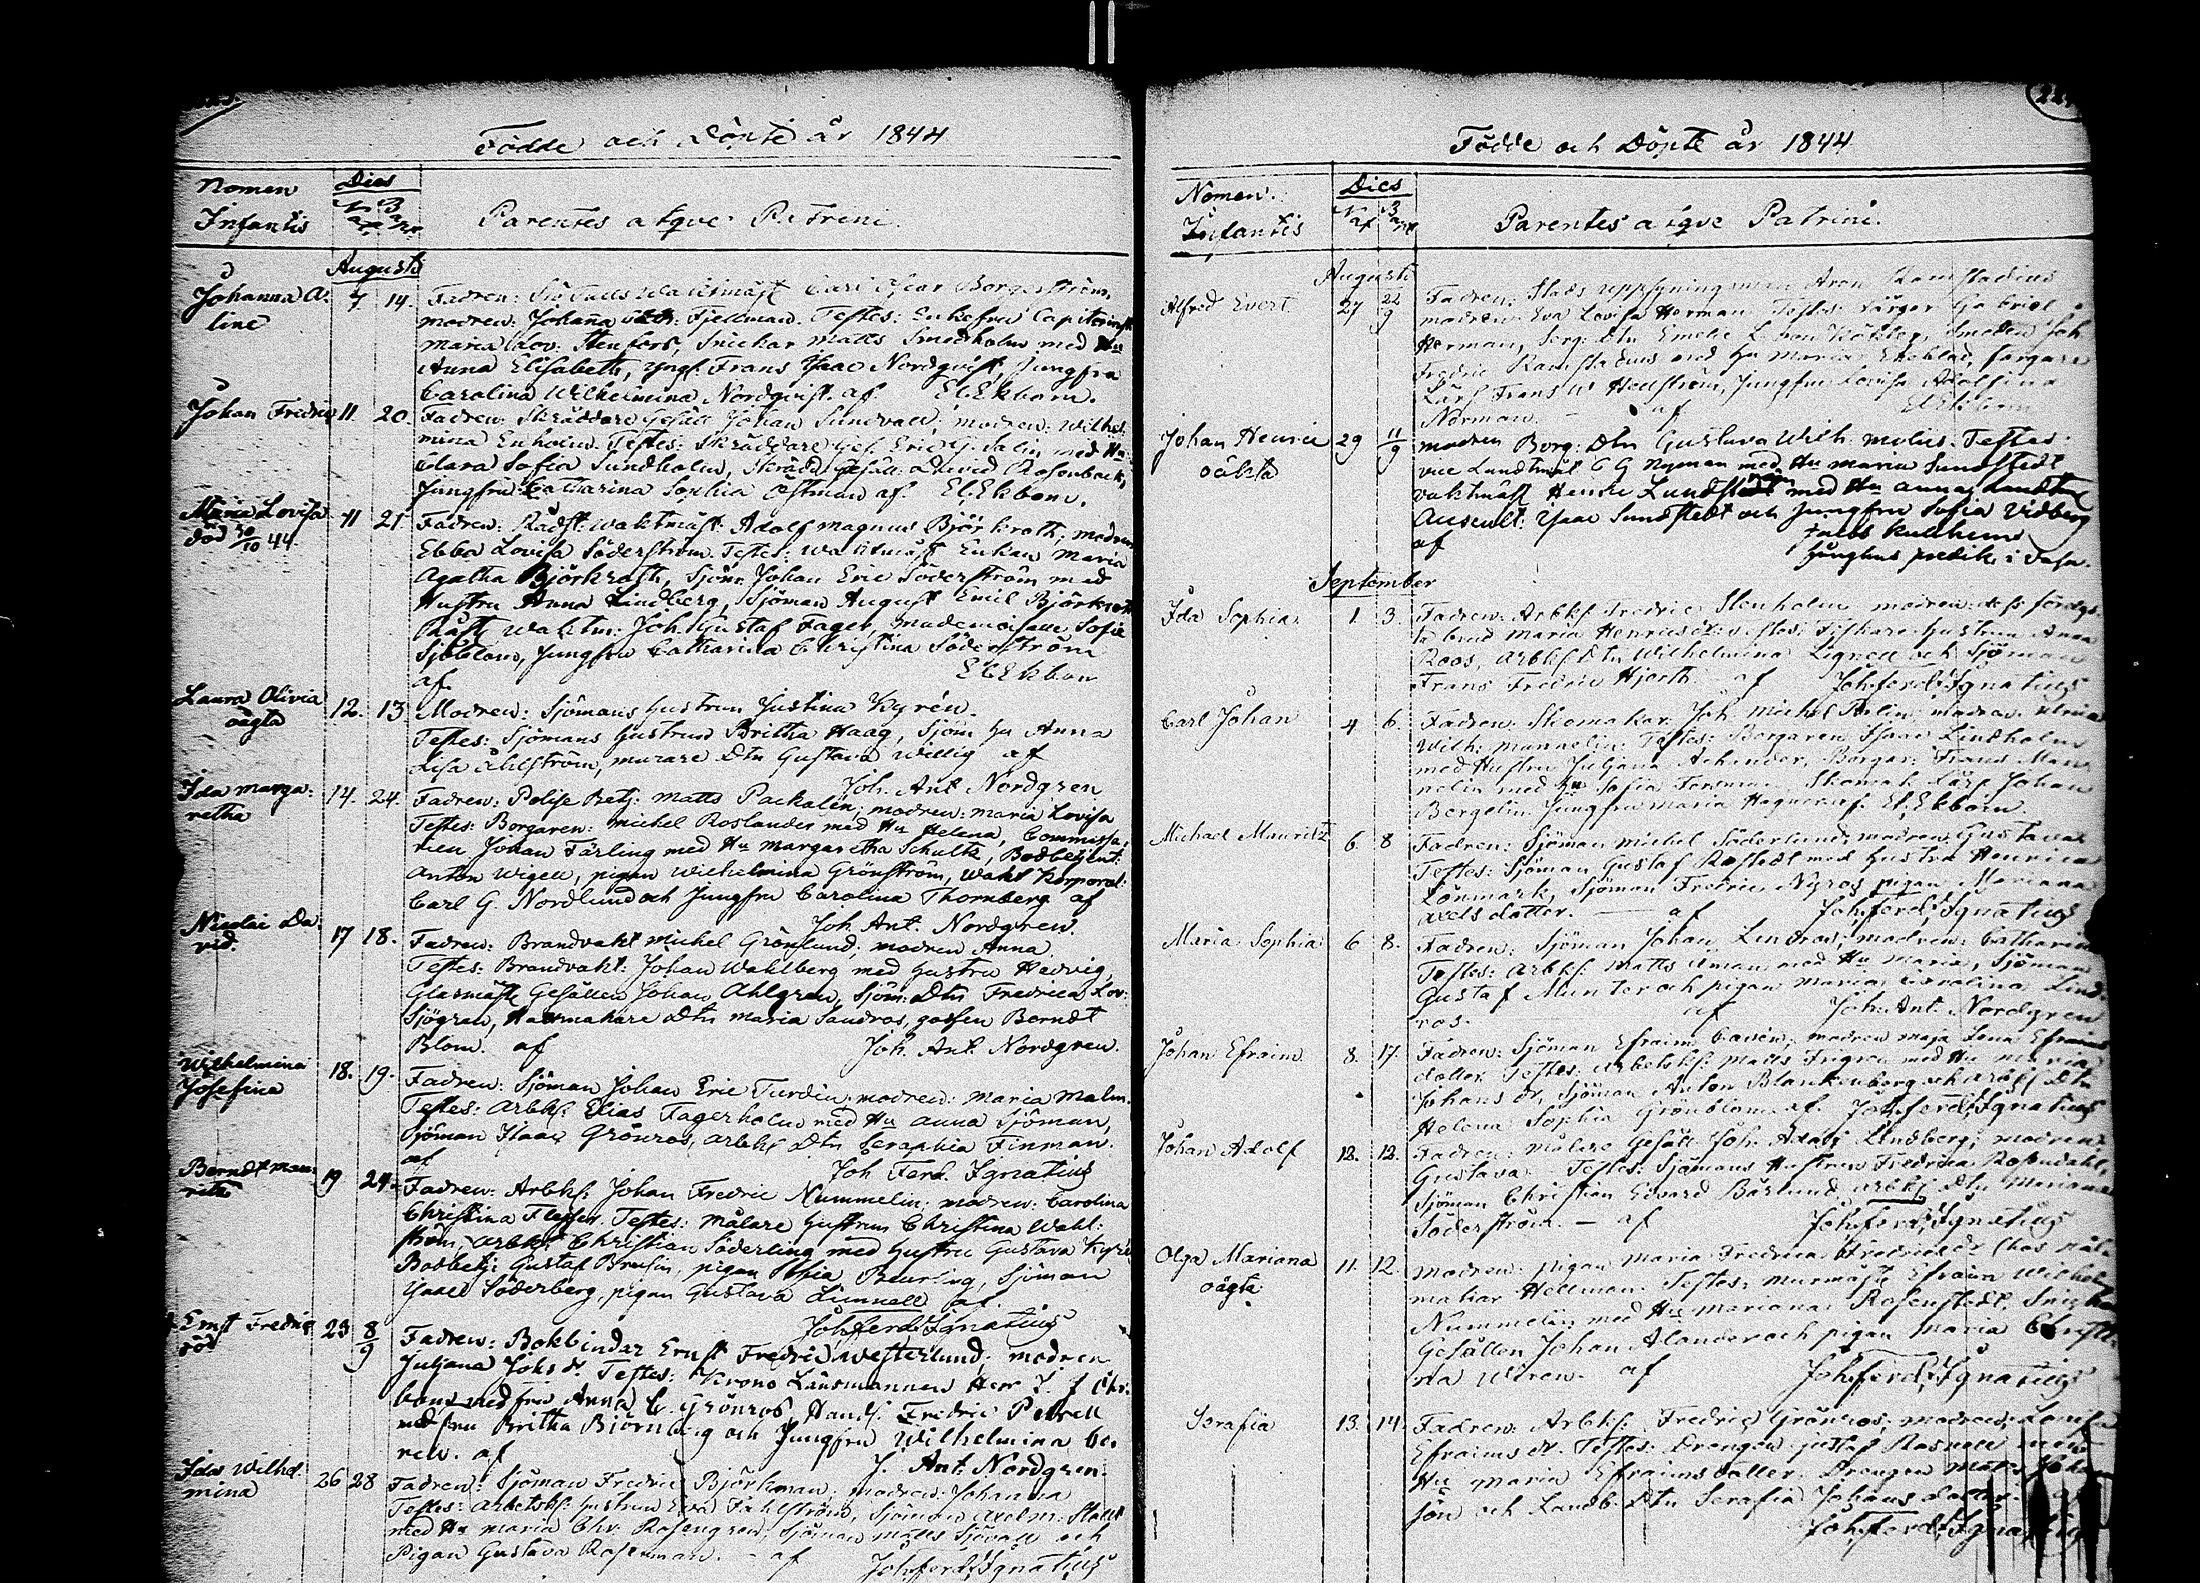 Födde och Döpte år 1844
Nomen Infantis
Dies
Nat. Bapt.
Parentes atqve Patrini.
Augusti
Johanna Aline 7. 14. Fadren: Carl Borgström,
modren: Johanna Fjellman. Testes: Enkefru
Maria Lov. Stenfors, Snickar Matts Smedholm med Hu
Anna Elisabeth, yngl. Frans Isaac Nordqvist, Jungfru
Carolina Wilhelmina Nordqvist. af El. Ekbom.
Johan Fredric 11. 20. Fadren: Skräddare Gesäll Johan Sundvall; modren: Wilhel-
mina Enholm. Testes: Skräddare Ges. Eric G. Salin med Hu
Clara Sofia Sundholm, Skrädd. Gesäll David Rosenback,
Jungfru Catharina Sophia Östman af. El. Ekbom.
Maria Lovisa död 30/10 44. 11 21. Fadren: Rådst. Waktmäst. Adolf Magnus Björkroth, modren
Ebba Lovisa Söderström. Testes: Waktmäst. Enkan Maria
Agatha Björkroth, Sjöm. Johan Eric Söderström med
Hustru Anna Lindberg, Sjöman August Emil Björkroth
Rådst. Waktm: Joh. Gustaf Fager, Mademoiselle Sofie
Sjöblom, Jungfru Catharina Christina Söderström
af El. Ekbom
Laura Olivia oägta 12. 13. Modren: Sjömans Hustrun Justina Kyrén.
Testes: Sjömans Hustrun Britha Haag, Sjöm. Hu Anna
Lisa Åhlström, murare Dtn Gustava Willig af
Joh. Ant. Nordgren
Ida Margaretha 14. 24. Fadren: Polise Betj: Matts Packalén; modren: Maria Lovisa
Testes: Borgaren: Michel Roslander med Hu Helena, Commissa-
rien Johan Färling med Hu Margaretha Schultz, Bodbetjent:
Anton Wigell, pigan Wilhelmina Grönström, Wakt Korporal:
Carl G. Nordlund och Jungfru Carolina Thornberg af
Joh. Ant. Nordgren.
Nicolai David. 17 18. Fadren: Brandvakt Michel Grönlund; modren Anna.
Testes: Brandvakt: Johan Wahlberg med Hustru Hedvig,
Glasmäst. Gesällen Johan Ahlgren, Sjöm: Dtn Fredrica Lov.
Sjögren, Hattmakare Dtn Maria Sandros, gossen Berndt
Blom. af Joh. Ant. Nordgren.
Wilhelmina Josefina 18. 19. Fadren: Sjöman Johan Eric Turdin modren: Maria Malm.
Testes: Arbks: Elias Fagerholm med Hu Anna Sjöman,
Sjöman Isaac Grönros, Arbks Dtn Seraphia Finman.
af Joh. Ferd. Ignatius
Berndt Mauritz 19 24. Fadren: Arbks: Johan Fredric Nummelin; modren: Carolina
Christina Testes: Målare Hustrun Christina Wahl-
ström, Arbks: Christian Söderling med Hustru Gustava
Bodbetj: Gustaf pigan Beurling, Sjöman
Söderberg, pigan Gustava Linnell af.
Joh. Ferd. Ignatius
Ernst Fredric död 23 8/9 Fadren: Bokbindar Ernst Fredric Westerlund; modren
Juljana Johs dr. Testes: Krono Länsmannen Herr J. J.
med fru Anna C. Grönros, Hands. Fredric
med fru Britha Björnberg och Jungfru Wilhelmina
af J. Ant. Nordgren.
Ida Wilhelmina 26 28 Fadren: Sjöman Fredric Björkman; modren: Johanna
Testes: Arbetsks. Hustrun Eva Fahlström, Sjöman
med Hu Maria Chr. Rosengren, Sjöman Matts Sjövall och
Pigan Gustava Rosenman. – af Joh. Ferd. Ignatius
Födde och Döpte år 1844
Nomen Infantis
Dies
Nat. Bapt.
Parentes atqve Patrini.
Augusti
Alfred Evert 27 22/9 Fadren: Stads uppsyningsman Aron Ramstadius
modren: Eva Lovisa Herman Testes: Färgar Gabriel
Herman, Dtn Emelie Smeden Joh.
Fredric Ramstadius med Hu Maria Ekeblad, färgare
Lärl. Frans W. Hellström, Jungfru Lovisa Adolfina
Norman. – af El. Ekbom
Johan Henric oäkta 29 11/9 modren Borg: Dtn Gustava Wilh. Molius. Testes:
vice Landtmät. C G Nyman med Hu Maria Sundstedt
vaktmäst. Henric Lundstedt med Hu Anna
Auscult: Isaac Sundstedt och Jungfru Sofia Vidberg
af Jacob
predik. i Vasa.
September
Ida Sophia 1. 3. Fadren: Arbks. Fredric Stenholm modren: dess
brud Maria Testes: Fiskare Hustrun Anna
Roos, Arbks. Dtn Wilhelmina Lignell och Sjöman
Frans Fredric Hjorth. af Joh. Ferd. Ignatius
Carl Johan 4 6. Fadren: Skomakar Joh. Michel modren: Ulrica
Wilh. Mannelin. Testes: Borgaren Isaac Lindholm
med Hustru Juljana Achander, Borgar: Frans Man-
nelin med Hu Sofia Skomak. Lärl. Johan
Bergelin, Jungfru Maria af. El. Ekbom
Michael Mauritz 6 8 Fadren: Sjöman Michel Söderlund; modren: Gustava
Testes: Sjöman Gustaf Rostedt med Hustru Henrica
Lönmark, Sjöman Fredric Nyroos, pigan Mariana
Axels dotter. – af Joh. Ferd. Ignatius
Maria Sophia 6 8. Fadren: Sjöman Johan Lindros; modren: Catharina
Testes: Arbks: Matts med Hu Maria, Sjöman
Gustaf Munter och pigan Maria Carolina Lind-
ros. af Joh. Ant. Nordgren
Johan Efraim 8. 17. Fadren: Sjöman Efraim modren Maja Lena Efraims
dotter Testes: Arbetsks: Matts med Hu Maria
Johans dr, Sjöman Anton Blankenberg och Arbks Dtn
Helena Sophia Grönblom. af. Joh. Ferd. Ignatius
Johan Adolf 12. 12. Fadren: Målare Gesäll Joh: Adolf Lindberg; modren:
Gustava. Testes: Sjömans Hustrun Fredrica Rosendahl,
Sjöman Christian Edvard Bärlund, Arbks Dtn Mariana
Söderström. – af Joh. Ferd. Ignatius
Olga Mariana oägta 11. 12. modren: pigan Maria Fredrica Fredrics dr (hos
makar Hellman. Testes: Murmäst. Efraim Wilhelm
Nummelin med Hu Mariana Rosenstedt,
Gesällen Johan Alander och pigan Maria Christi-
na Wiren. af Joh. Ferd. Ignatius
Serafia 13. 14. Fadren: Arbks. Fredric Grönros; modren: Lovisa
Efraims dr. Testes: Drengen Gustaf Rosnell med
Hu Maria Efraimsdotter. Drengen Matts
son och Landb. Dtn Serafia Johans dotter.
Joh. Ferd. Ignatius